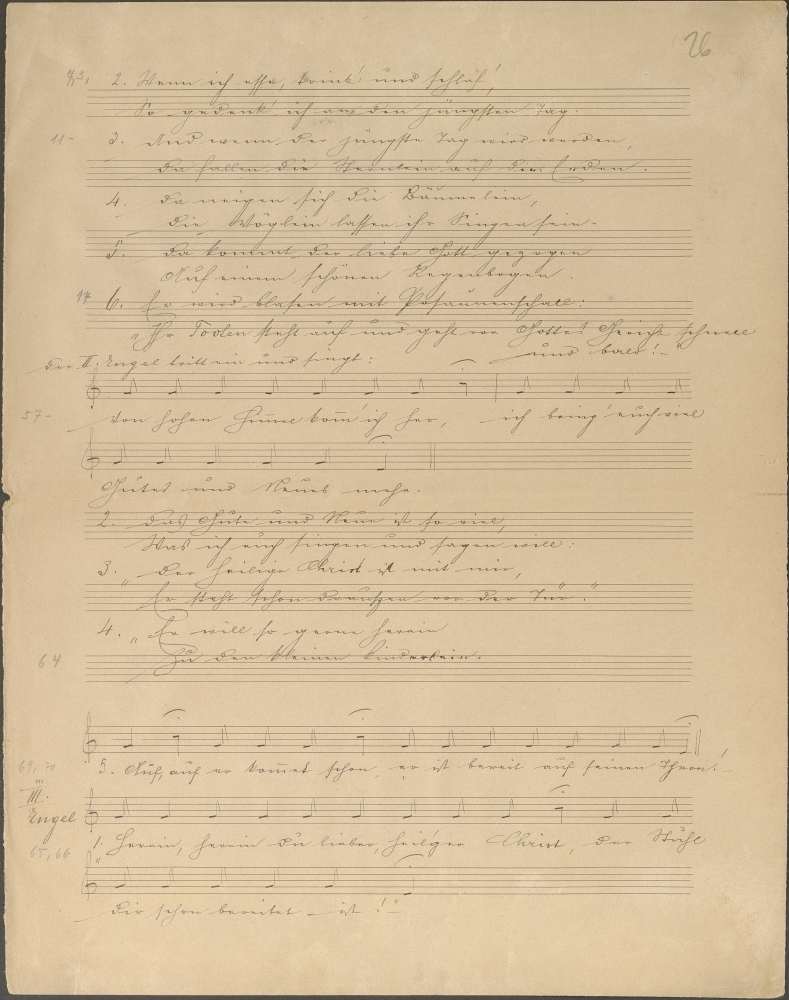 26
9,5, 2. Wenn ich esse, trink' und schlaf',
So gedenk' ich an den jüngsten Tag.
11- 3. Und wenn der jüngste Tag wird werden,
Da fallen die Sternlein auf die Erden.
4. Da neigen sich die Bäumelein,
Die Vöglein lassen ihr Singen sein.
5. Da kommt der liebe Gott gezogen
Auf einem schönen Regenbogen.
14 6. Er wird blasen mit Posaunenschall:
„Ihr Todten steht auf und geht vor Gottes Gericht schnell
und bald!"
Der II. Engel tritt ein und singt:
57- Von hohen Himmel komm' ich her, ich bring' euch viel
Gutes und Neues mehr.
2. Das Gute und Neue ist so viel,
Was ich euch singen und sagen will:
3. „Der heilige Christ ist mit mir,
Er steht schon drauszen vor der Tür."
4. „Er will so gerne herein
64 Zu den kleinen Kinderlein.
69, 70 5. Auf, auf er kommet schon, er ist bereit auf seinen Thron!
III.
Engel
65, 66 1. „Herein, herein du lieber, heil'ger Christ, der Stuhl
dir schon bereitet ist!"